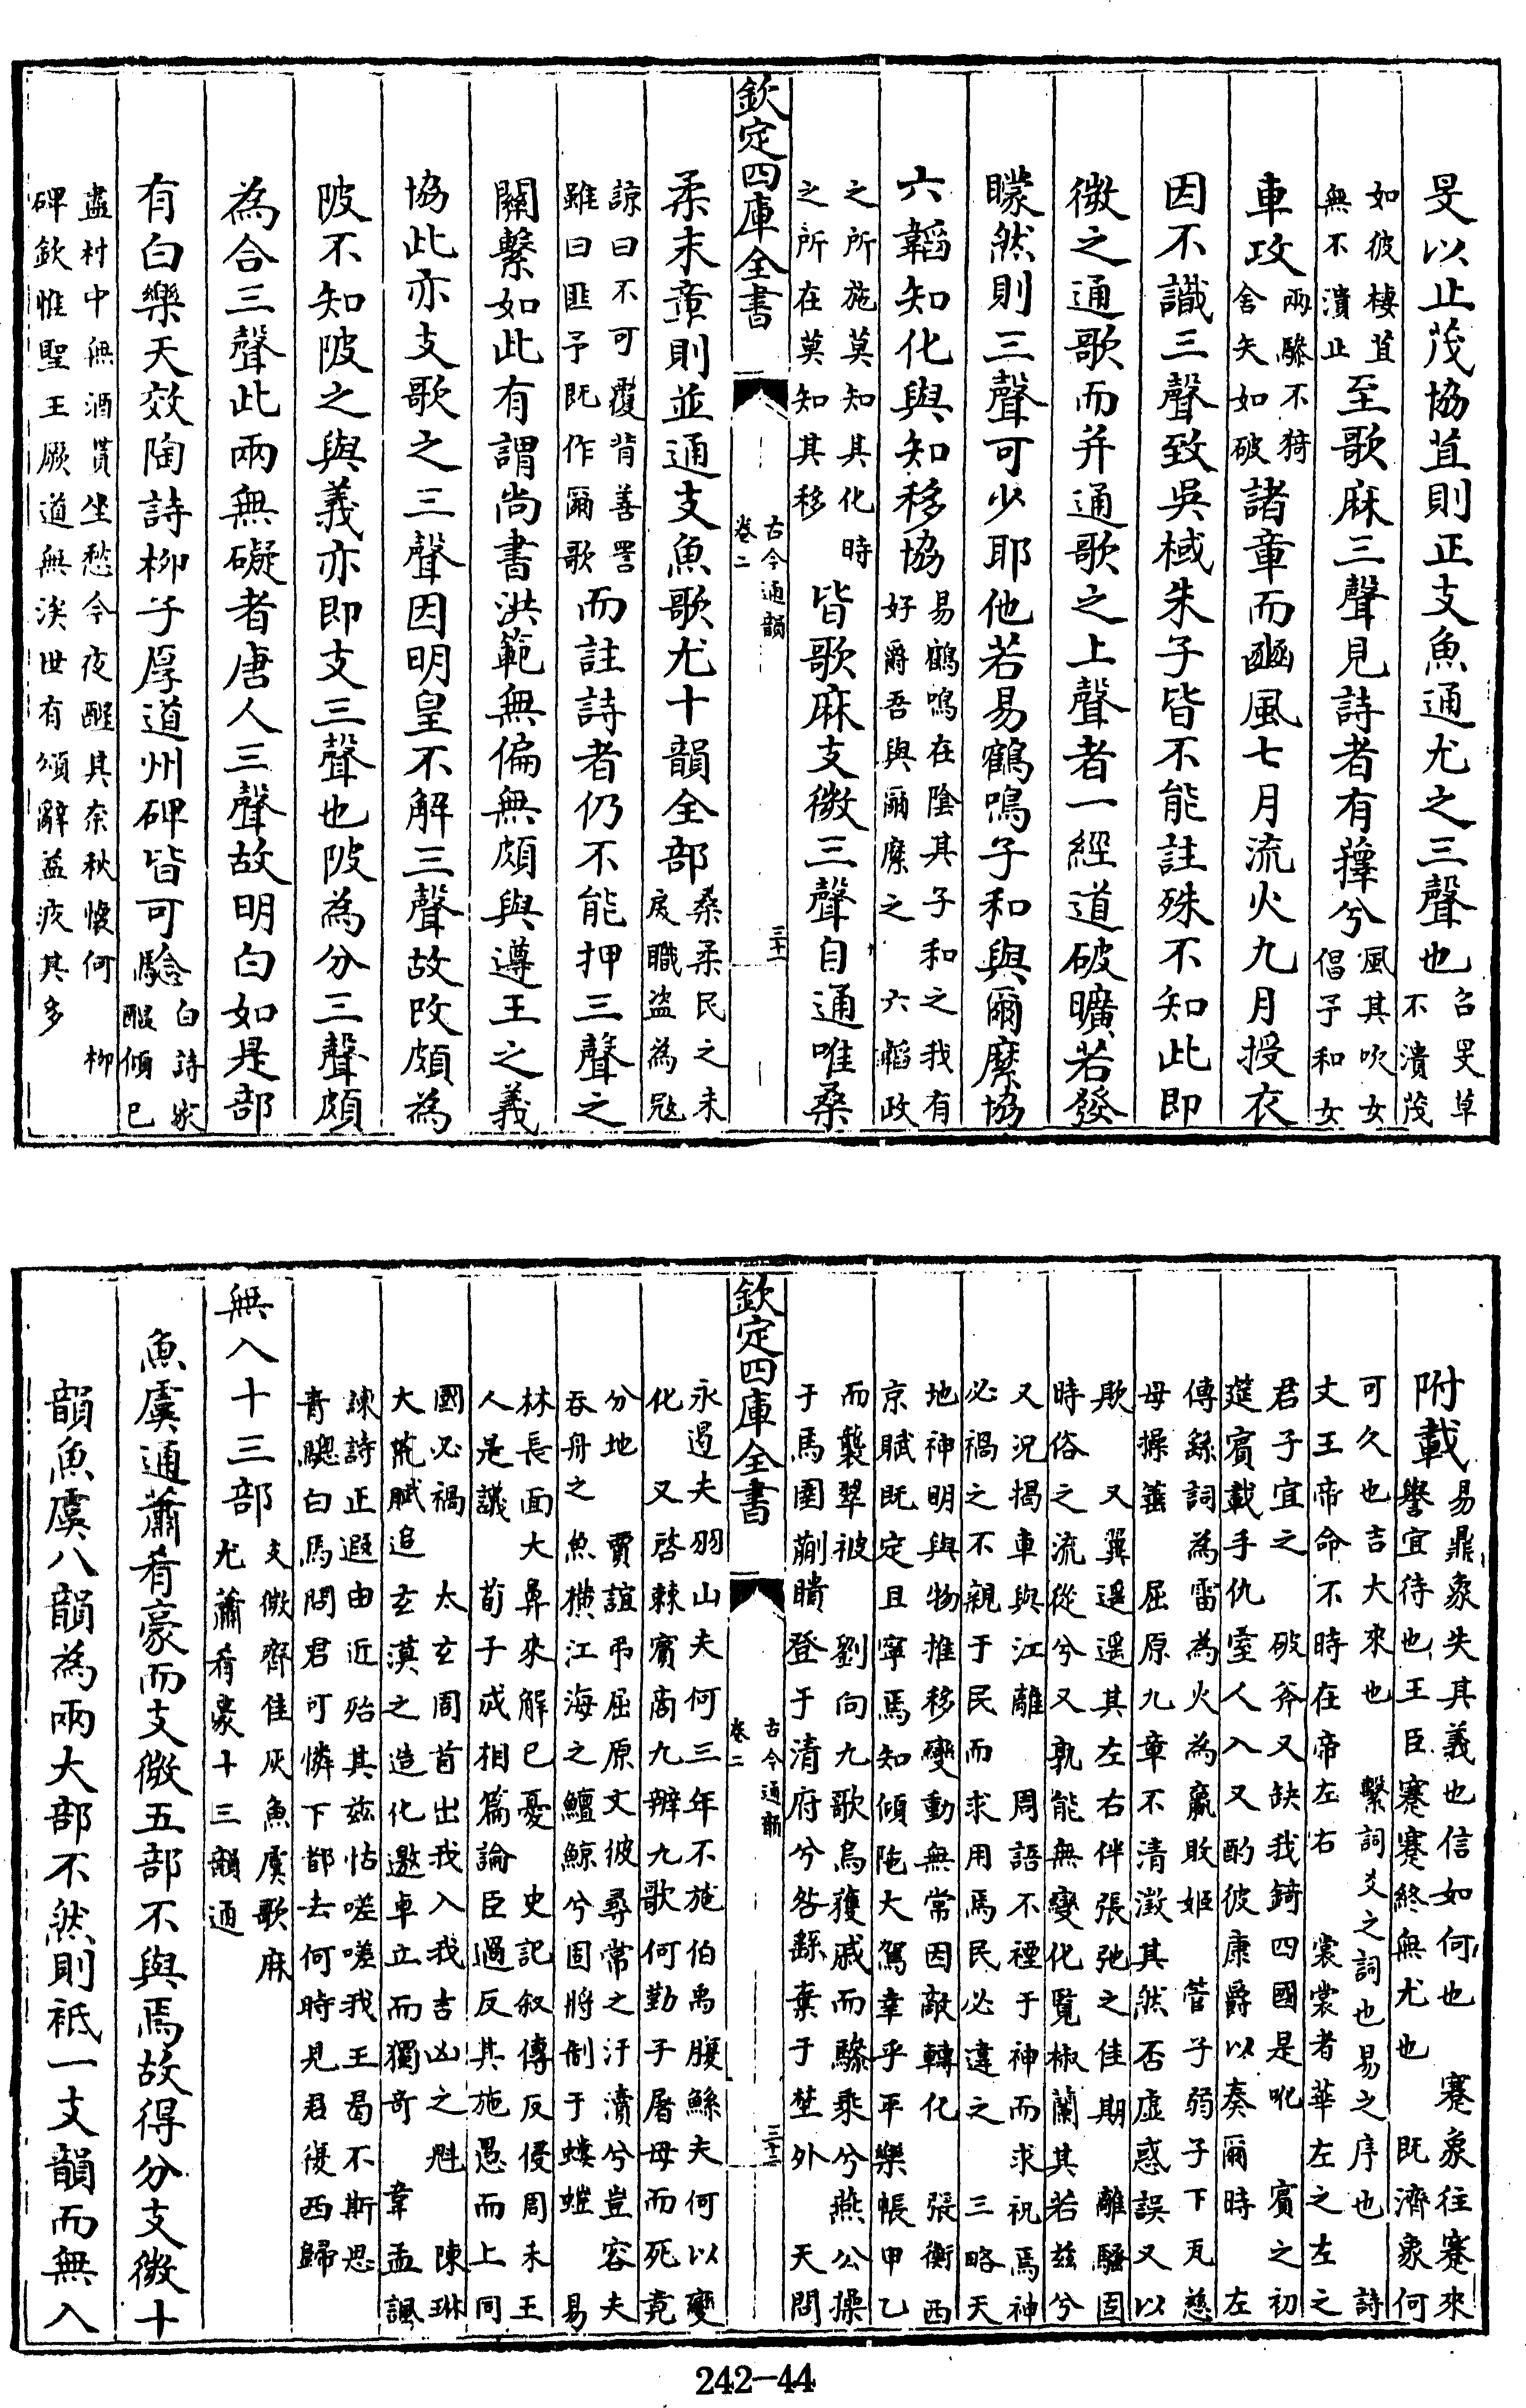 旻以止茂協苴則正支魚通尤之三聲也召旻草不潰茂
如彼棲苴無不潰止至歌麻三聲見詩者有蘀兮風其吹女倡予和女
車攻兩驂不猗舍矢如破諸章而豳風七月流火九月授衣
因不識三聲致吳棫朱子皆不能註殊不知此即
微之通歌而并通歌之上聲者一經道破曠若發
矇然則三聲可少耶他若易鶴鳴子和與爾縻協
六韜知化與知移協易鶴鳴在陰其子和之我有好爵吾與爾縻之 六韜政
之所施莫知其化時之所在莫知其移皆歌麻支微三聲自通唯桑
欽定四庫全書 古今通韻 卷二 三十一
柔末章則並通支魚歌尤十韻全部桑柔民之未戾職盜為寇
諒曰不可覆背善詈雖曰匪予既作爾歌而註詩者仍不能押三聲之
關繫如此有謂尚書洪範無偏無頗與遵王之義
協此亦支歌之三聲因明皇不解三聲故改頗為
陂不知陂之與義亦即支三聲也陂為分三聲頗
為合三聲此兩無礙者唐人三聲故明白如是部
有白樂天效陶詩柳子厚道州碑皆可驗白詩家醖傾已
盡村中無酒貰坐愁今夜醒其奈秋懷何 柳碑欽惟聖王厥道無涘世有頌辭益疚其多
附載易鼎象失其義也信如何也 蹇象往蹇來譽宜待也王臣蹇蹇終無尤也 既濟象何
可久也吉大來也 繫詞爻之詞也易之序也 詩文王帝命不時在帝左右 裳裳者華左之左之
君子宜之 破斧又缺我錡四國是吪 賓之初筵賓載手仇室人入又酌彼康爵以奏爾時 左
傳繇詞為雷為火為嬴敗姬 管子弱子下瓦慈母操箠 屈原九章不清澂其然否虛惑誤又以
欺 又翼遥遥其左右伴張弛之佳期 離騷固時俗之流從兮又孰能無變化覽椒蘭其若茲兮
又況揭車與江離 周語不禋于神而求祝焉神必禍之不親于民而求用焉民必違之 三略天
地神明與物推移變動無常因敵轉化 張衡西京賦既定且寧焉知傾陁大駕幸乎平樂帳甲乙
而襲翠被 劉向九歌烏獲戚而驂乘兮燕公操于馬圉蒯瞶登于清府兮咎繇棄于埜外 天問
欽定四庫全書 古今通韻 卷二 三十二
永遏夫羽山夫何三年不施伯禹腹鯀夫何以變化 又啓棘賓商九辨九歌何勤子屠母而死竟
分地 賈誼弔屈原文彼尋常之汙瀆兮豈容夫吞舟之魚横江海之鱣鯨兮固將制于螻螘 易
林長面大鼻來解已憂 史記叙傳反侵周末王人是議 荀子成相篇論臣過反其施愚而上同
國必禍 太玄周首出我入我吉凶之魁 陳琳大荒賦追玄漠之造化邀卓立而獨奇 韋孟諷
諫詩正遐由近殆其兹怙嗟嗟我王曷不斯思青驄白馬問君可憐下都去何時見君復西歸
無入十三部支微齊佳灰魚虞歌麻尤蕭肴豪十三韻通
魚虞通蕭肴豪而支微五部不與焉故得分支微十
韻魚虞八韻為兩大部不然則衹一支韻而無入
242-44